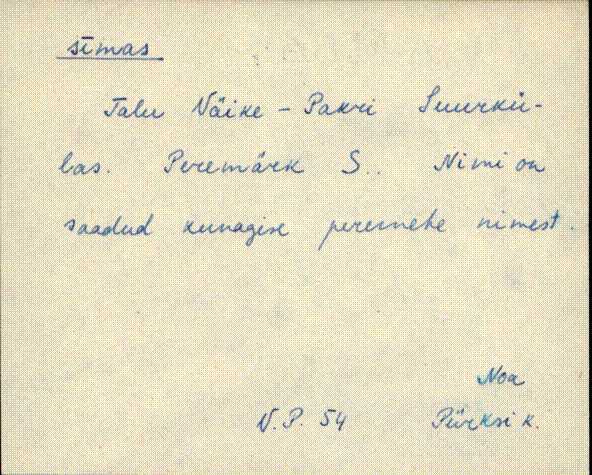 sīmas
Talu Väike - Pakri Suurkü-
las. Peremärk S.. Nimi on
saadud kunagise peremehe nimest.
Noa
V.P. 54 Pürksi k.